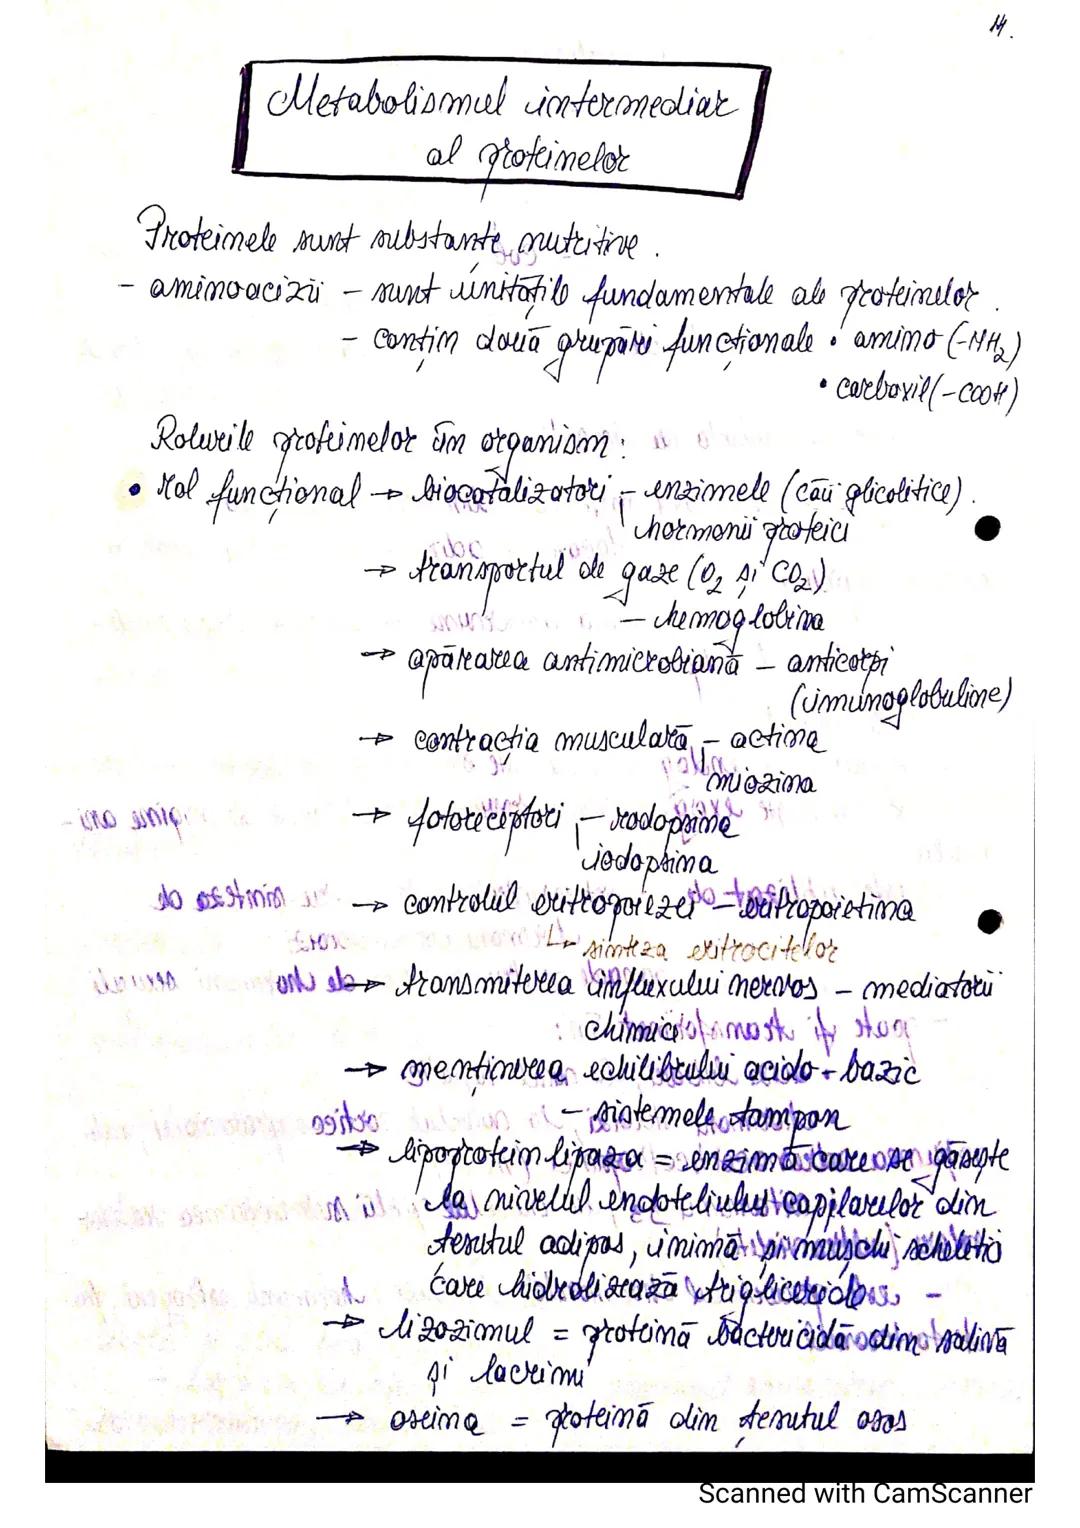 14.
Metabolismul intermediar
al proteinelor
Proteinele sunt substanțe nutritive.
- aminoacizii - sunt unitățile fundamentale ale proteinelor.
- conțin două grupări funcționale • amino (-NH₂)
• carboxil (-COOH)
Rolurile proteinelor în organism:
• Rol funcțional → biocatalizatori - enzimele (căii glicolitice).
hormonii proteici
→ transportul de gaze (O₂ și CO₂)
- hemoglobina
→ apărarea antimicrobiană - anticorpi
(imunoglobuline)
→ contracția musculară - actina
miozina
→ fotoreceptori - rodopsina
iodopsina
→ controlul eritropoiezei - eritropoietina
↳ sinteza eritrocitelor
→ transmiterea influxului nervos - mediatorii
chimici
→ menținerea echilibrului acido-bazic
- sistemele tampon
→ lipoprotein lipaza = enzimă care se găsește
la nivelul endoteliului capilarelor din
țesutul adipos, inimă și mușchi scheletici
care hidrolizează trigliceridele
→ lizozimul = proteină bactericidă din salivă
și lacrimi
→ oseina = proteină din țesutul osos
Scanned with CamScanner